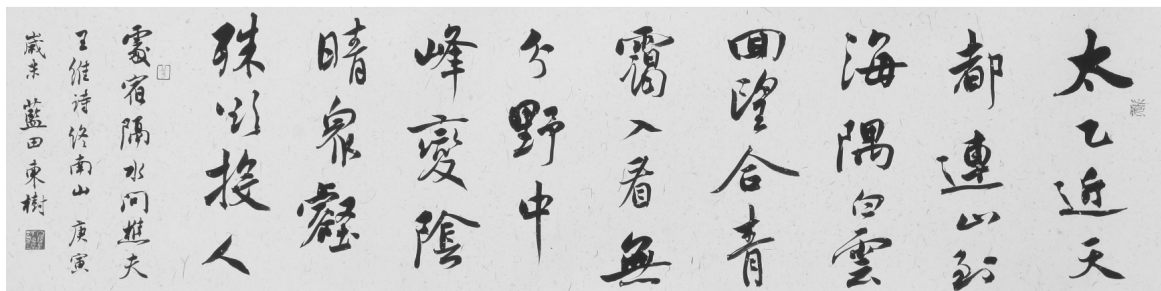 太乙近天
都連山到
海隅白雲
回望合青
靄入看無
分野中
峰變陰
晴衆壑
殊欲投人
處宿隔水問樵夫
王維詩終南山 庚寅
歲末 藍田東樹